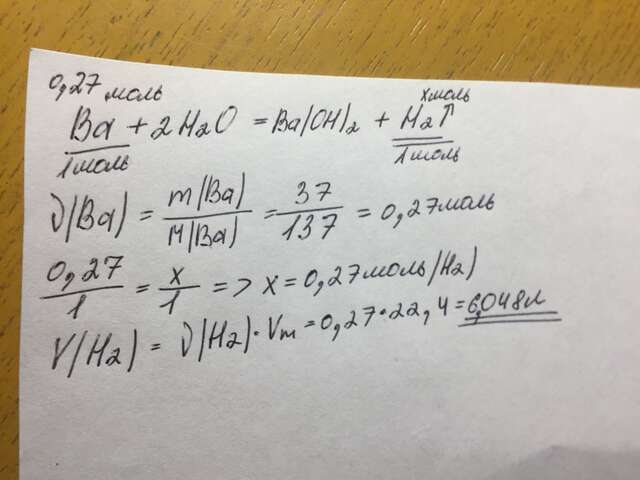 0,27 моль x моль
Ba + 2H₂O = Ba(OH)₂ + H₂↑
1 моль 1 моль
ν(Ba) = m(Ba)/M(Ba) = 37/137 = 0,27 моль
0,27/1 = x/1 => x = 0,27 моль (H₂)
V(H₂) = ν(H₂)·Vm = 0,27·22,4 = 6,048 л